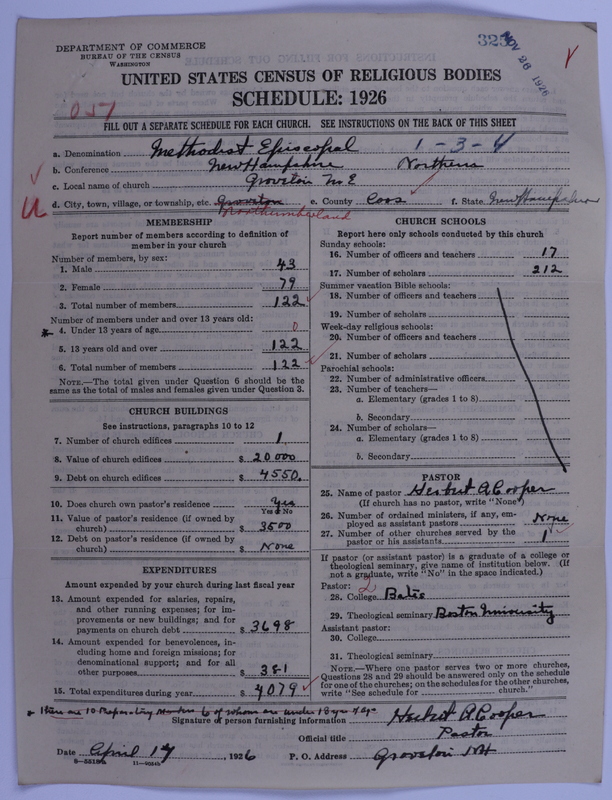 DEPARTMENT OF COMMERCE
BUREAU OF THE CENSUS
WASHINGTON
NOV 26 1926
UNITED STATES CENSUS OF RELIGIOUS BODIES
SCHEDULE: 1926
057
FILL OUT A SEPARATE SCHEDULE FOR EACH CHURCH. SEE INSTRUCTIONS ON THE BACK OF THIS SHEET
a. Denomination Methodist Episcopal 1-3-4
b. Conference New Hampshire Northern
c. Local name of church Groveton M E
d. City, town, village, or township, etc. Groveton e. County Coos f. State New Hampshire
Northumberland
MEMBERSHIP
Report number of members according to definition of
member in your church
Number of members, by sex:
1. Male 43
2. Female 79
3. Total number of members 122
Number of members under and over 13 years old:
* 4. Under 13 years of age 0
5. 13 years old and over 122
6. Total number of members 122
NOTE.—The total given under Question 6 should be the
same as the total of males and females given under Question 3.
CHURCH BUILDINGS
See instructions, paragraphs 10 to 12
7. Number of church edifices 1
8. Value of church edifices $ 20000
9. Debt on church edifices $ 4550.
10. Does church own pastor's residence Yes
Yes or No
11. Value of pastor's residence (if owned by
church) $ 3500
12. Debt on pastor's residence (if owned by
church) $ None
EXPENDITURES
Amount expended by your church during last fiscal year
13. Amount expended for salaries, repairs,
and other running expenses; for im-
provements or new buildings; and for
payments on church debt $ 3698
14. Amount expended for benevolences, in-
cluding home and foreign missions; for
denominational support; and for all
other purposes $ 381
15. Total expenditures during year $ 4079
CHURCH SCHOOLS
Report here only schools conducted by this church
Sunday schools:
16. Number of officers and teachers 17
17. Number of scholars 212
Summer vacation Bible schools:
18. Number of officers and teachers
19. Number of scholars
Week-day religious schools:
20. Number of officers and teachers
21. Number of scholars
Parochial schools:
22. Number of administrative officers
23. Number of teachers—
a. Elementary (grades 1 to 8)
b. Secondary
24. Number of scholars—
a. Elementary (grades 1 to 8)
b. Secondary
PASTOR
25. Name of pastor Herbert A Cooper
(If church has no pastor, write "None")
26. Number of ordained ministers, if any, em-
ployed as assistant pastors None
27. Number of other churches served by the
pastor or his assistants 1
If pastor (or assistant pastor) is a graduate of a college or
theological seminary, give name of institution below. (If
not a graduate, write "No" in the space indicated.)
Pastor: 2
28. College Bates
29. Theological seminary Boston University
Assistant pastor:
30. College
31. Theological seminary
NOTE.—Where one pastor serves two or more churches,
Questions 28 and 29 should be answered only on the schedule
for one of the churches; on the schedules for the other churches,
write "See schedule for church."
* there are 10 Preparatory Members 6 of whom are under 13 yrs of age
Signature of person furnishing information Herbert A. Cooper
Official title Pastor
Date April 17, 1926 P. O. Address Groveton NH